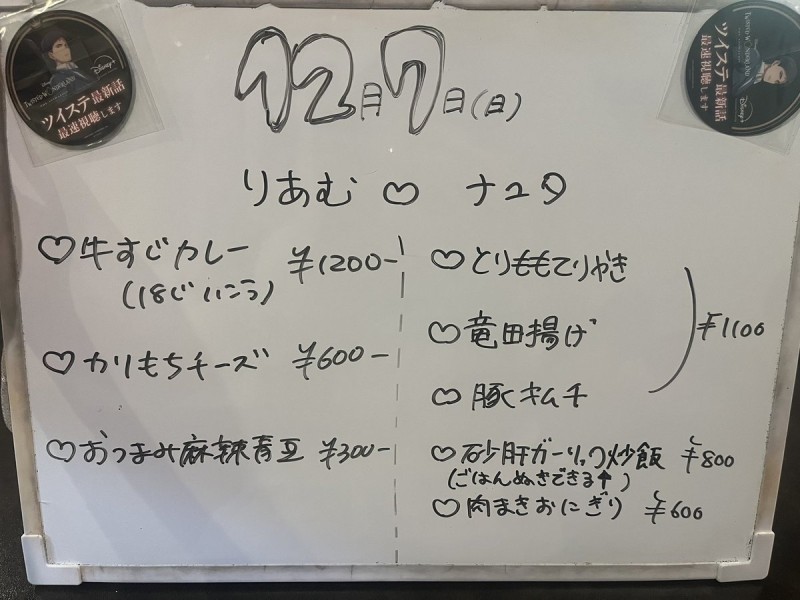 Disney+
ツイステ最新話
最速視聴します
Disney+
ツイステ最新話
最速視聴します
12月7日(日)
りあむ♡ ナユタ
♡牛すじカレー ¥1200-
(18じいこう)
♡カリもちチーズ ¥600-
♡おつまみ麻辣青豆 ¥300-
♡とりももてりやき
♡竜田揚げ
♡豚くキムチ
¥1100
♡砂肝ガーリック炒飯 ¥800
(ごはんぬきできる↑)
♡肉まきおにぎり ¥600